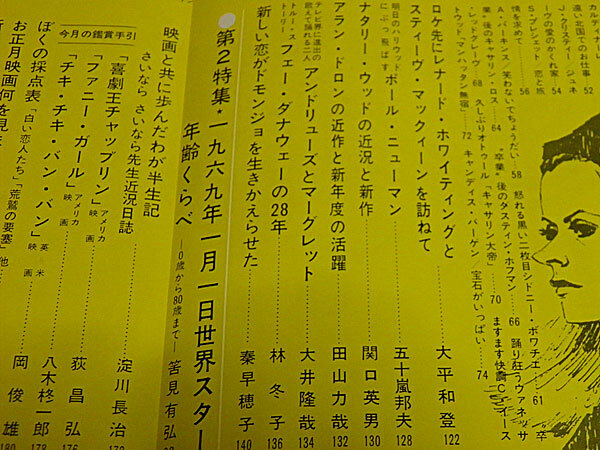 カルディナーレ
遠い北国でのお仕事 52
J・クリスティー ジュネ
ーヴの愛のかくれ家 54
S・プレシェット 恋と旅
情を求めて 56
A・パーキンス 笑わないでちょうだい 58
怒れる黒い二枚目シドニー・ポワチエ 61
卒
業・後のキャサリン・ロス 64
"卒業"後のダスティン・ホフマン 66
踊り狂うヴァネッサ
・レッドグレーヴ 68
久しぶりオトゥール「キャサリン大帝」 70
ますます快調C・イース
トウッド・マンハッタン無宿 72
キャンディス・バーゲン 宝石がいっぱい 74
ロケ先にレナード・ホワイティングと
スティーヴ・マックィーンを訪ねて 大平和登 122
明日のハリウッド
にぶっ飛ばす ポール・ニューマン 五十嵐邦夫 128
ナタリー・ウッドの近況と新作 関口英男 130
アラン・ドロンの近作と新年度の活躍 田山力哉 132
テレビ界に進出の
歌えて踊れる二人 アンドリューズとマーグレット 大井隆哉 134
フェー・ダナウェーの28年 林冬子 136
新しい恋がドモンジョを生きかえらせた 秦早穂子 140
●第2特集★一九六九年一月一日世界スター
年齢くらべ ─0歳から80歳まで─ 筈見有弘
映画と共に歩んだわが半生記
さいなら さいなら先生近況日誌 淀川長治
今月の鑑賞手引
「喜劇王チャップリン」アメリカ映画 荻昌弘 176
「ファニー・ガール」アメリカ映画
「チキ・チキ・バン・バン」英米映画 八木柊一郎 178
ぼくの採点表「白い恋人たち」「荒鷲の要塞」他 岡俊雄 180
お正月映画何を見ま